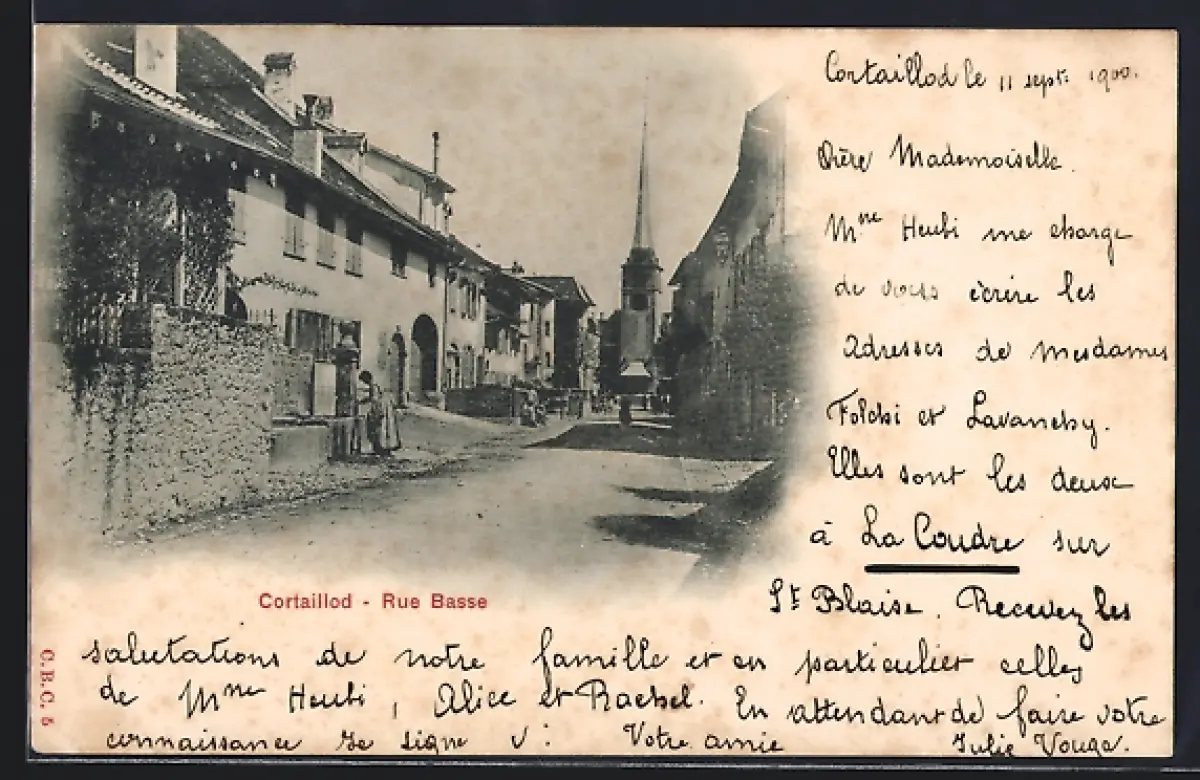 Cortaillod le 11 sept. 1900.
Chère Mademoiselle.
Mme Heubi me charge
de vous écrire les
Adresses de Mesdames
Folchi et Lavanchy.
Elles sont les deux
à La Coudre sur
St Blaise. Recevez les
salutations de notre famille et en particulier celles
de Mme Heubi, Alice et Rachel. En attendant de faire votre
connaissance je signe : Votre amie Julie Vouga.
Cortaillod - Rue Basse
C.B.C. 5